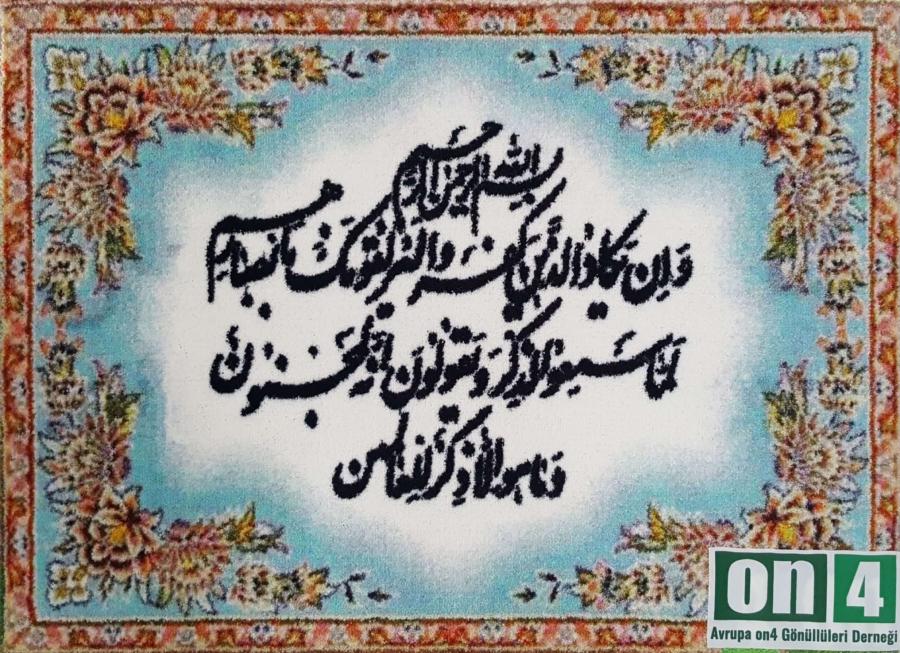 بسم الله الرحمن الرحيم
وَاِن يَكَادُ الَّذينَ كَفَرُوا لَيُزْلِقُونَكَ بِاَبْصَارِهِمْ
لَمَّا سَمِعُوا الذِّكْرَ وَيَقُولُونَ اِنَّهُ لَمَجْنُونٌ
وَمَا هُوَ اِلَّا ذِكْرٌ لِلْعَالَمينَ
on 4
Avrupa on4 Gönüllüleri Derneği